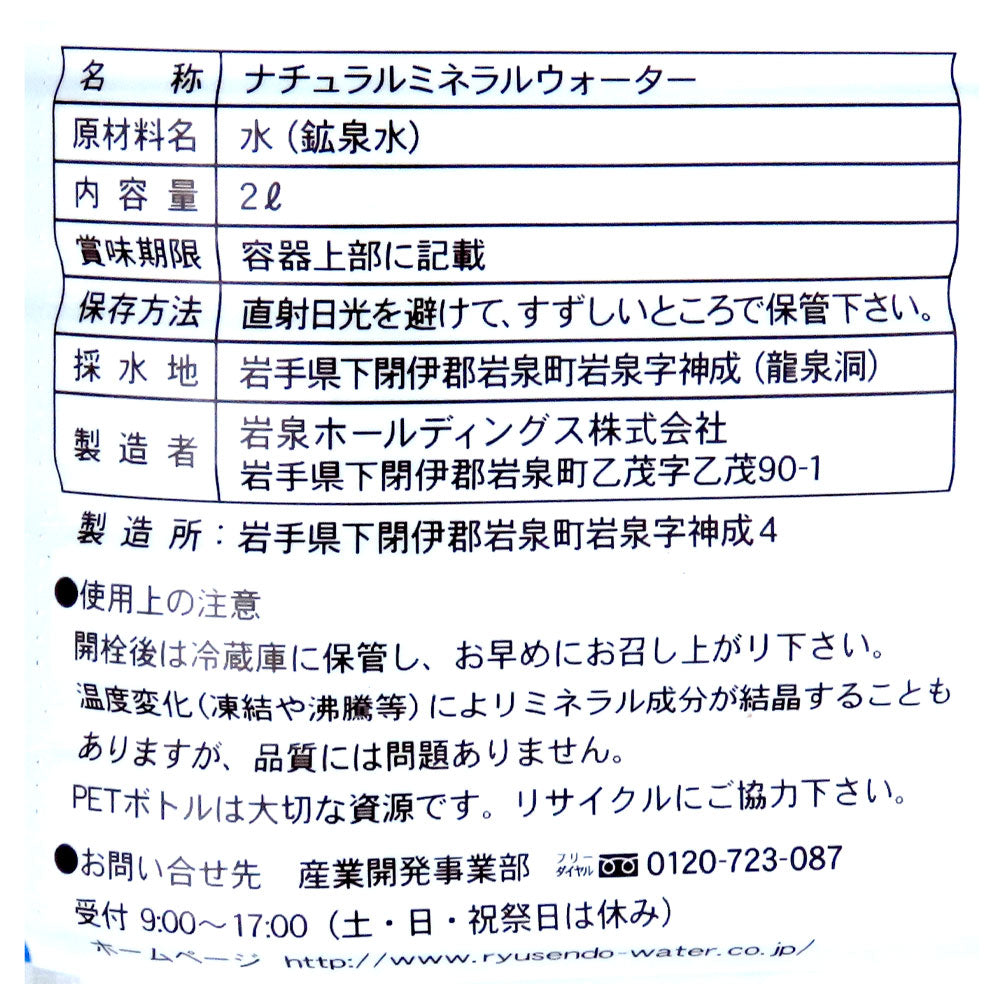 名称 ナチュラルミネラルウォーター
原材料名 水（鉱泉水）
内容量 2ℓ
賞味期限 容器上部に記載
保存方法 直射日光を避けて、すずしいところで保管下さい。
採水地 岩手県下閉伊郡岩泉町岩泉字神成（龍泉洞）
製造者 岩泉ホールディングス株式会社
岩手県下閉伊郡岩泉町乙茂字乙茂90-1
製造所：岩手県下閉伊郡岩泉町岩泉字神成4
●使用上の注意
開栓後は冷蔵庫に保管し、お早めにお召し上がり下さい。
温度変化（凍結や沸騰等）によりミネラル成分が結晶することも
ありますが、品質には問題ありません。
PETボトルは大切な資源です。リサイクルにご協力下さい。
●お問い合せ先 産業開発事業部 フリーダイヤル 0120-723-087
受付 9:00～17:00（土・日・祝祭日は休み）
ホームページ http://www.ryusendo-water.co.jp/